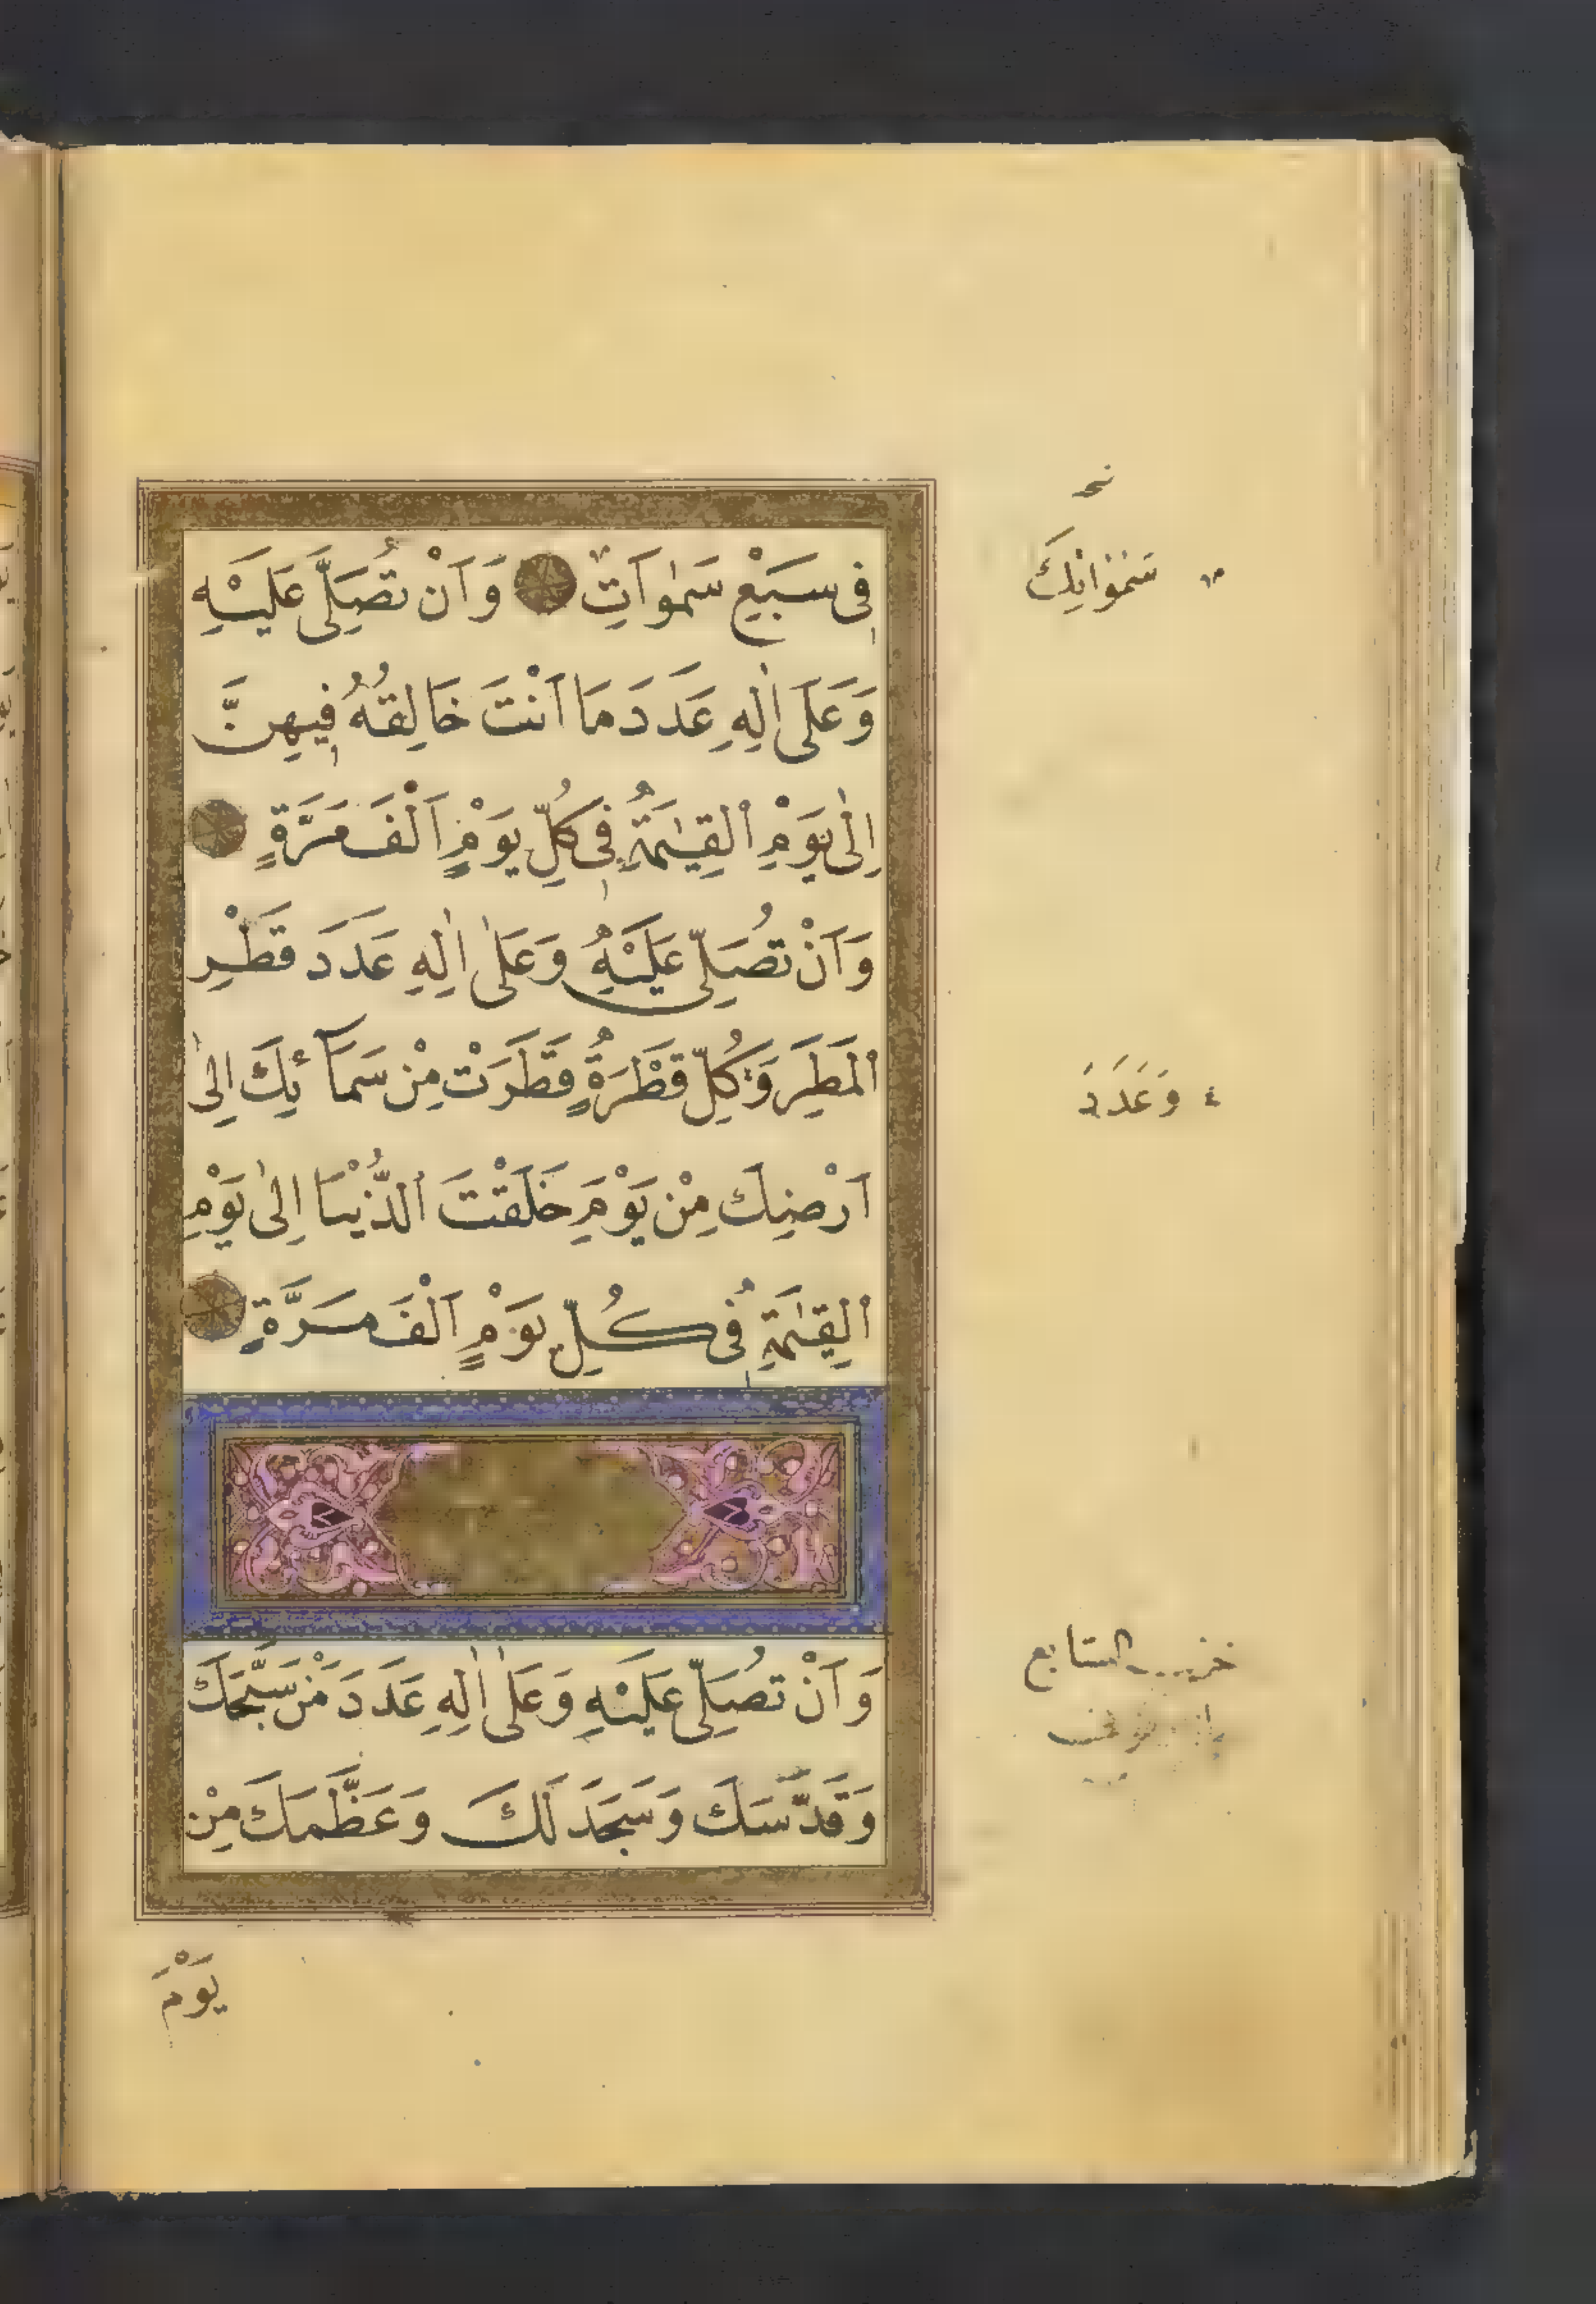 فِى سَبْعِ سَمٰوَاتٍ وَاَنْ تُصَلِّىَ عَلَيْهِ
وَعَلَى اٰلِهِ عَدَدَ مَا اَنْتَ خَالِقُهُ فِيهِنَّ
اِلٰى يَوْمِ الْقِيٰمَةِ فِى كُلِّ يَوْمٍ اَلْفَ مَرَّةٍ
وَاَنْ تُصَلِّىَ عَلَيْهِ وَعَلٰى اٰلِهِ عَدَدَ قَطْرِ
الْمَطَرِ وَكُلِّ قَطْرَةٍ قَطَرَتْ مِنْ سَمَآئِكَ اِلٰى
اَرْضِكَ مِنْ يَوْمِ خَلَقْتَ الدُّنْيَا اِلٰى يَوْمِ
الْقِيٰمَةِ فِى كُلِّ يَوْمٍ اَلْفَ مَرَّةٍ
وَاَنْ تُصَلِّىَ عَلَيْهِ وَعَلٰى اٰلِهِ عَدَدَ مَنْ سَبَّحَكَ
وَقَدَّسَكَ وَسَجَدَ لَكَ وَعَظَّمَكَ مِنْ
يَوْمَ
سَمٰوَاتِكَ
٤ وَعَدَدَ
السابع